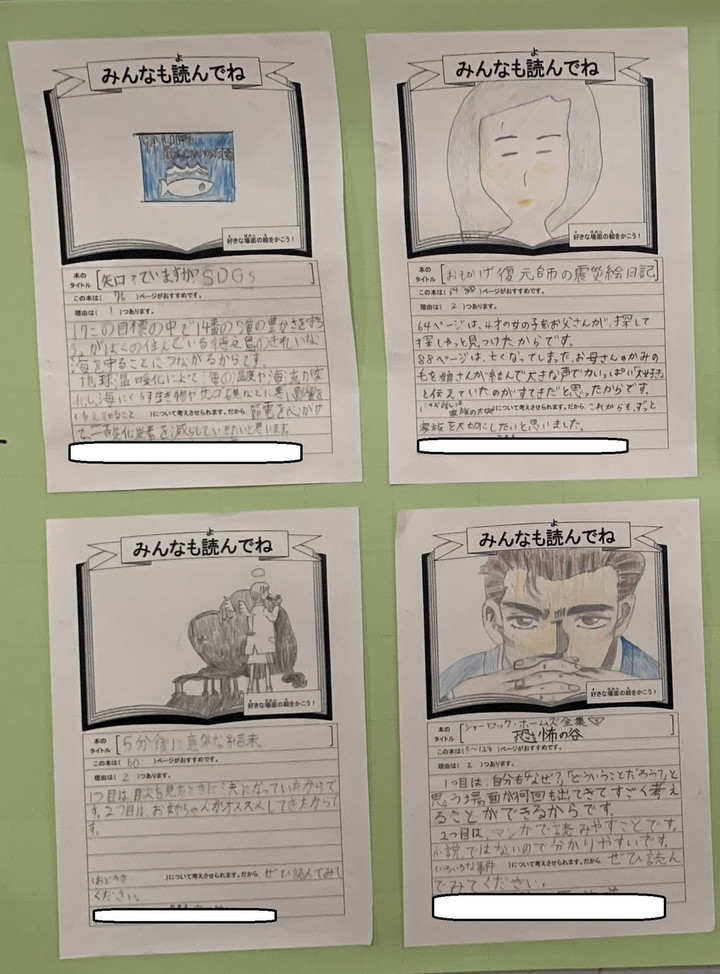 よ
みんなも読んでね
好きな場面の絵をかこう!
本の
タイトル
[知っていますか?SDGs]
この本は( 76 )ページがおすすめです。
理由は( 1 )つあります。
17この目標の中で14番の海の豊かさを守ろ
う、がぼくの住んでいる徳之島のきれいな
海を守ることにつながるからです。
地球温暖化によって海の温度や海流が変
化し、海にくらす生き物やサンゴ礁などに悪い影響を
あたえてやること )について考えさせられます。だから、節電を心がけ
て、二酸化炭素を減らしていきたいと思います
よ
みんなも読んでね
好きな場面の絵をかこう!
本の
タイトル
[おもかげ復元師の震災絵日記]
この本は( 64 88 )ページがおすすめです。
理由は( 2 )つあります。
64ページは、4才の女の子をお父さんが、探して
探しやっと見つけたからです。
88ページは、亡くなってしまった、お母さんのかみの
毛を娘さんが結んで大きな声でかいっぱい「大好き」
と伝えていたのがすてきだと思ったからです。
家族の大切 )について考えさせられます。だから、これからも、ずっと
家族を大切にしたいと思いました。
よ
みんなも読んでね
好きな場面の絵をかこう!
本の
タイトル
[5分後に意外な結末
この本は( 60 )ページがおすすめです。
理由は( 2 )つあります。
1つ目は目次を見たときに気になっていたからで
す。2つ目は、お姉ちゃんがオススメしてきたからで
す。
(おどろき )について考えさせられます。だから、ぜひ読んでみて
ください。
よ
みんなも読んでね
好きな場面の絵をかこう!
本の
タイトル
シャーロック・ホームズ全集
恐怖の谷
この本は( 5~128 )ページがおすすめです。
理由は( 2 )つあります。
1つ目は、自分も「なぜ?」「どういうことだろう?」と
思う場面が何回も出てきてすごく考え
ることができるからです。
2つ目は、マンガで読みやすことです。
小説ではないので分かりやすいです。
いろいろな事件 )について考えさせられます。だから、ぜひ読ん
でみてください。